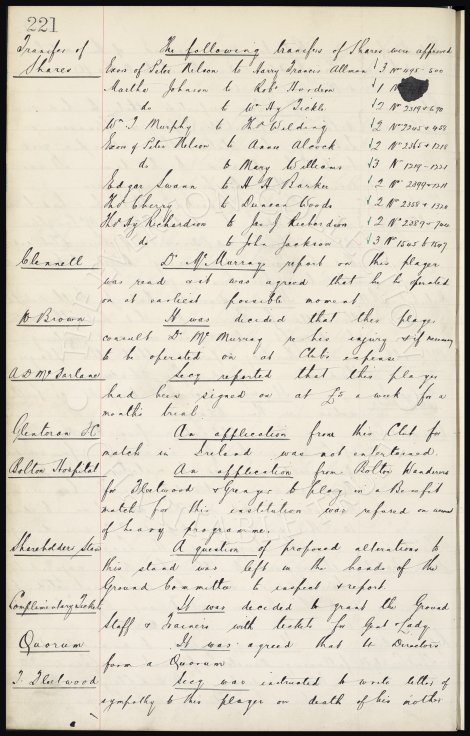 221
Transfer of The following transfers of Shares were approved
Shares Exors of Peter Nelson to Harry Francis Allman 3 No 498-500
Martha Johnson to Robt 1 No
do to Wm Hy Tickle 2 No
Wm J Murphy to Thos Welding 2 No
Exors of Peter Nelson to Annie Alcock 2 No
do to Mary Williams 3 No 1219-1221
Edgar Swann to H H Barker 2 No
Thos Cherry to Duncan Woods 2 No 2358 + 1320
Thos Hy Richardson to Jas J Richardson 2 No
do to John Jackson 3 No 1545 to 1547
Clennell Dr McMurrays report on this player
was read & it was agreed that he be operated
on at earliest possible moment
W Brown It was decided that this player
consult Dr Mc Murray re his injury & if necessary
to be operated on at Clubs expense
A D McFarlane Secy reported that this player
had been signed on at £5 a week for a
months trial
Glentoran FC An application from this Club for
match in Ireland was not entertained
Bolton Hospital An application from Bolton Wanderers
for Fleetwood & Grenyer to play in a Benefit
match for this institution was refused on account
of heavy programme.
Shareholders Stand A question of proposed alterations to
this stand was left in the hands of the
Ground Committee to inspect & report
Complimentary Tickets It was decided to grant the Ground
Staff & Trainers with tickets for Gent & Lady
Quorum It was agreed that 4 Directors
form a Quorum
T. Fleetwood Secy was instructed to write letter of
sympathy to this player on death of his mother